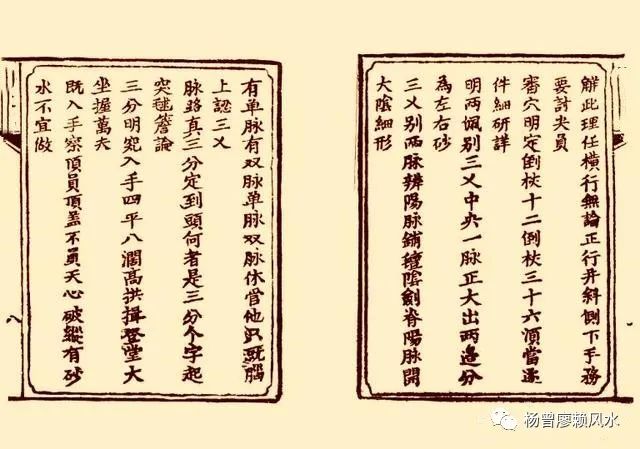 解此理任橫行無論正行并斜倒下手務
要討尖員
審穴明定倒杖十二倒杖三十六須當逐
件細研詳
明两佩别三乂中央一脉正大出两邉分
為左右砂
三乂别两脉辨陽脉鋪毡陰劍脊陽脉開
大陰細形
有单脉有双脉单脉双脉休管他只𪠽腦
上認三乂
脉路真三分定到頭何者是三分个字起
突毬簷論
三分明究入手四平八濶高拱揖登堂大
坐握萬夫
既入手察頂員頂盖不員天心破縱有砂
水不宜做
八
杨曾廖赖风水